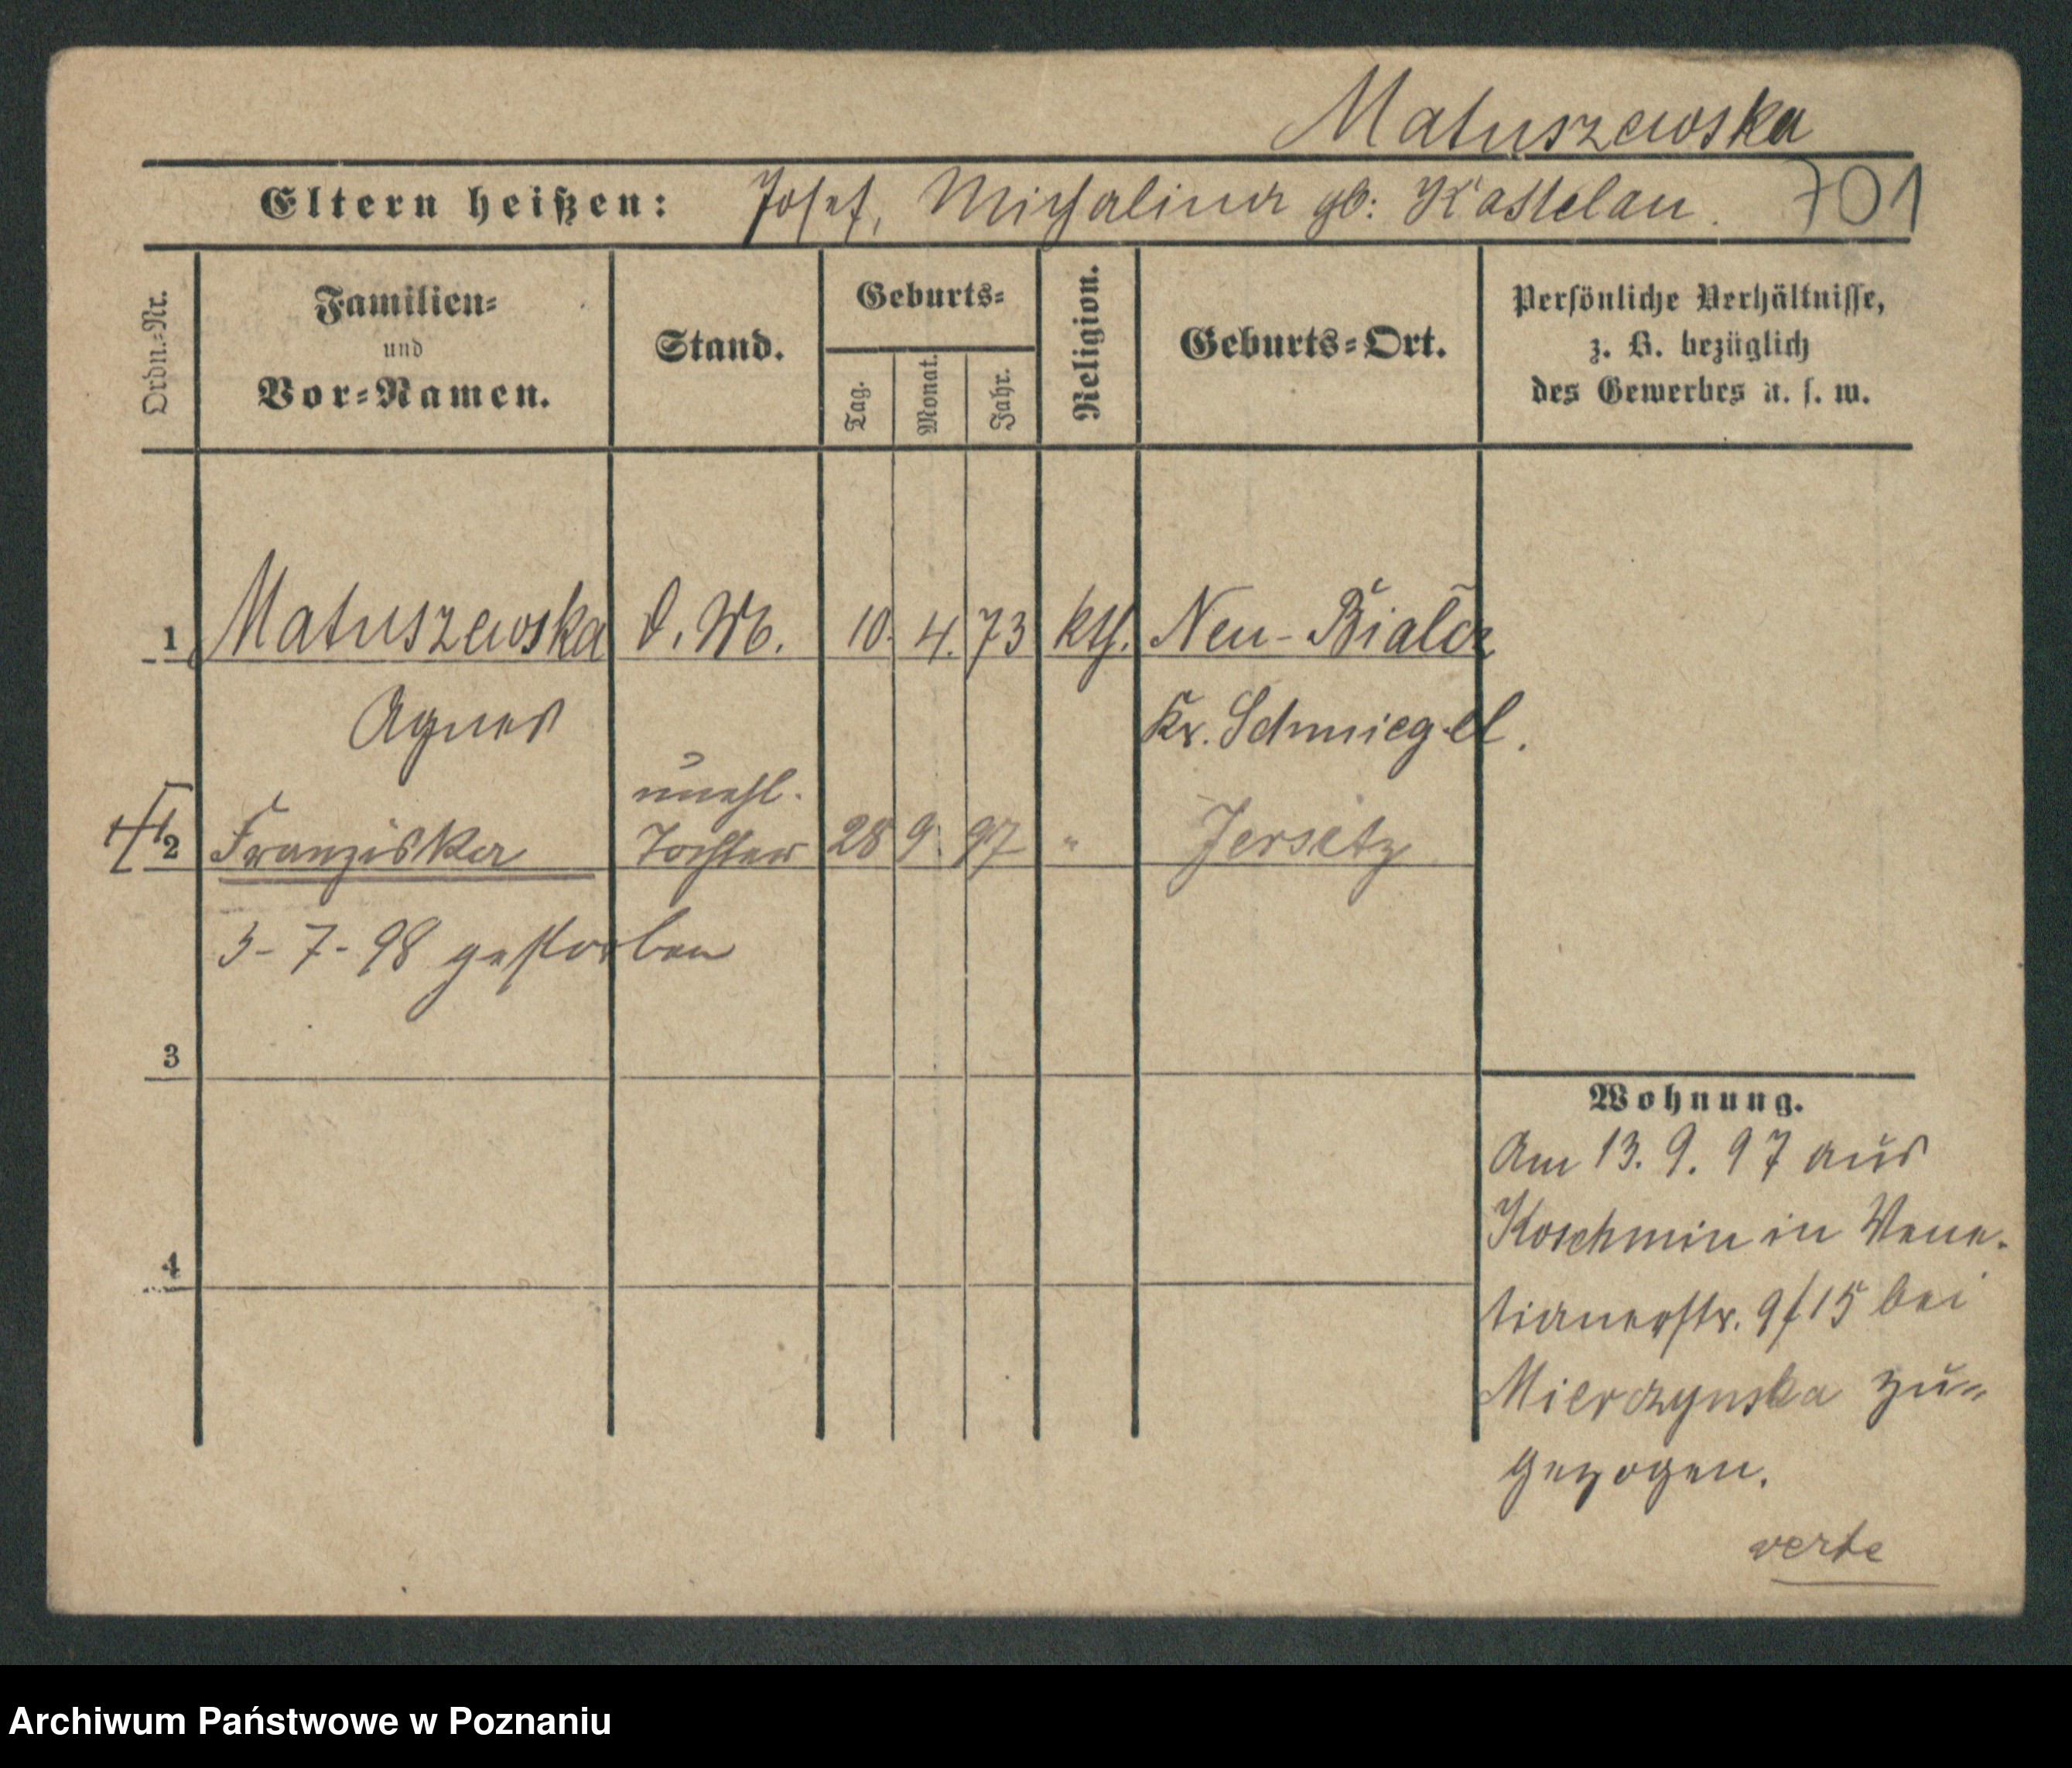 Matuszewska
Eltern heißen: Josef, Michalina gb: Kastelan. 701
Ordn.-Nr.
Familien-
und
Vor-Namen.
Stand.
Geburts-
Tag.
Monat.
Jahr.
Religion.
Geburts-Ort.
Persönliche Verhältnisse,
z. B. bezüglich
des Gewerbes u. s. w.
1 Matuszewska 10. 4. 73 kth. Neu-Bialcz
Agnes Kr. Schmiegel.
unehl.
2 Franziska Tochter 28 9. 97 " Jersitz
3-7-98 gestorben
3
4
Wohnung.
Am 13. 9. 97 aus
Koschmin in Vene-
tianerstr. 9/15 bei
Mierczynska zu-
gezogen.
verte
Archiwum Państwowe w Poznaniu